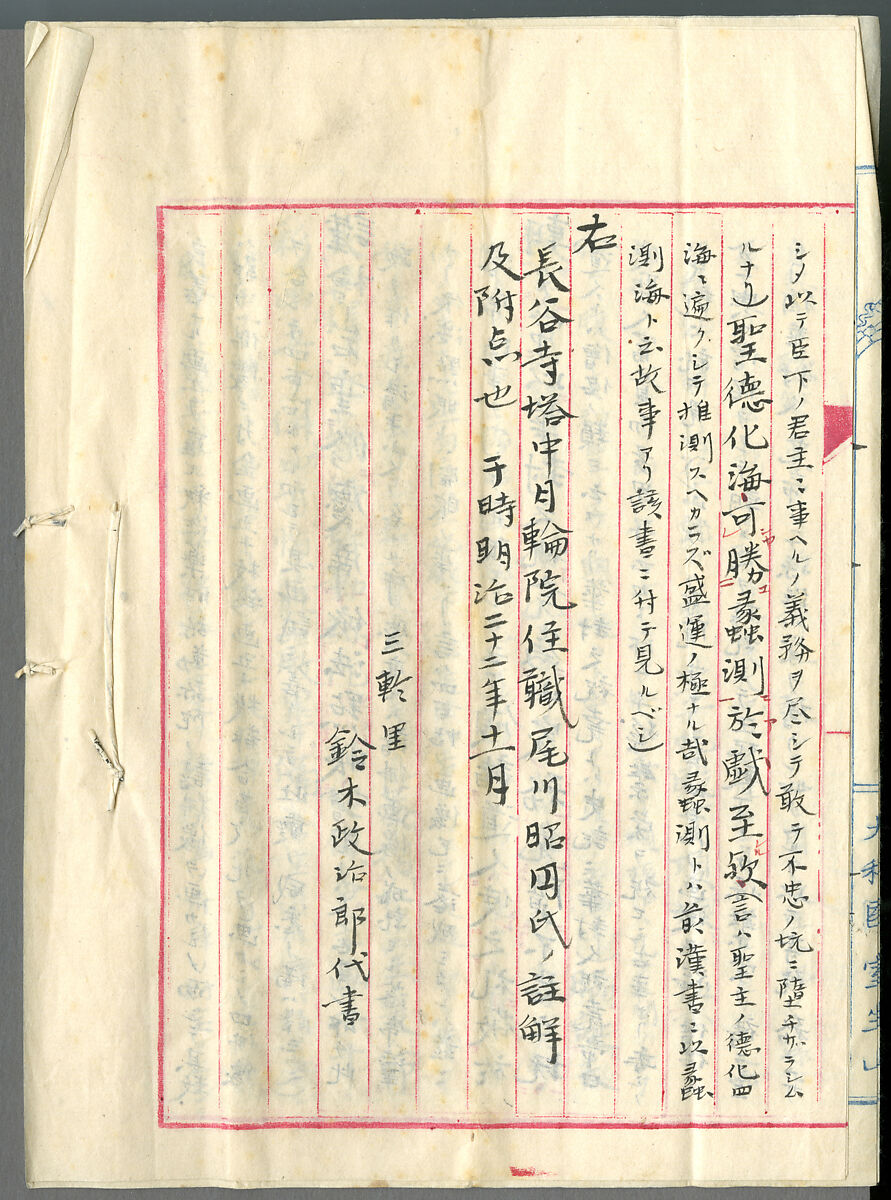 シメ以テ臣下ノ君主ニ事ヘルノ義務ヲ尽シテ敢テ不忠ノ坑ニ堕チザラシム
ルナリ)聖徳化海可勝蠡測於戯至欤(言ハ聖主ノ徳化四
海ニ遍クシテ推測スヘカラズ盛運ノ極ナル哉蠡測トハ前漢書ニ以蠡
測海ト云故事アリ該書ニ付テ見ルベシ)
右
長谷寺塔中月輪院住職尾川昭円氏ノ註解
及附点也 于時明治二十二年十一月
三輪里
鈴木政治郎代書
大和國室生山